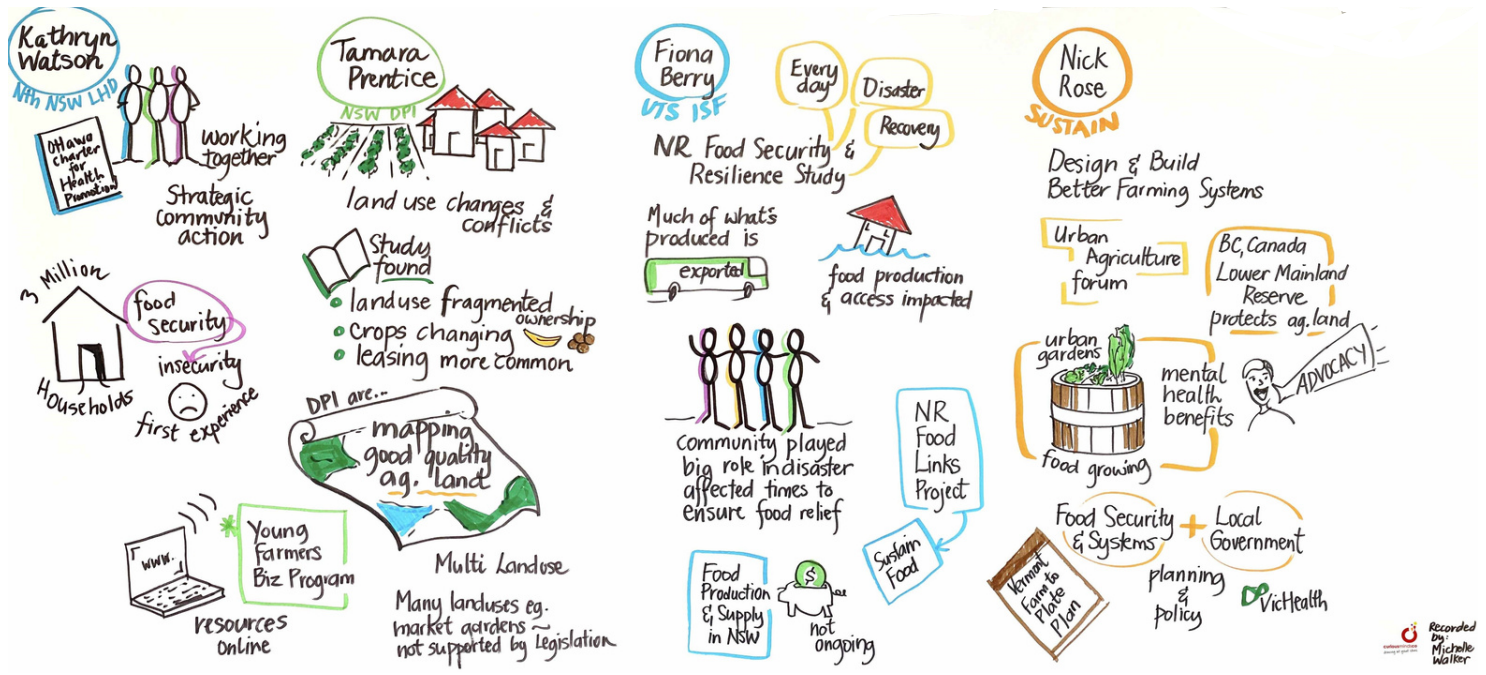 Kathryn
Watson
Nth NSW LHD
Ottawa
Charter
for
Health
Promotion
working
together
Strategic
community
action
3 Million
Households
food
security
insecurity
first experience
www.
resources
online
Young
Farmers
Biz Program
Tamara
Prentice
NSW DPI
land use changes &
conflicts
Study
found
landuse fragmented
ownership
crops changing
leasing more common
DPI are...
mapping
good quality
ag. land
Multi Landuse
Many landuses eg.
market gardens ~
not supported by Legislation
Fiona
Berry
UTS ISF
Every
day
Disaster
Recovery
NR Food Security &
Resilience Study
Much of what's
produced is
exported
food production
& access impacted
community played
big role in disaster
affected times to
ensure food relief
NR
Food
Links
Project
Sustain
Food
Food
Production
& Supply
in NSW
$
not
ongoing
Nick
Rose
SUSTAIN
Design & Build
Better Farming Systems
Urban
Agriculture
forum
BC, Canada
Lower Mainland
Reserve
protects ag. land
urban
gardens
mental
health
benefits
food growing
ADVOCACY
Food Security
& Systems
+
Local
Government
Vermont
Farm to
Plate
Plan
planning
&
policy
VicHealth
Recorded
by:
Michelle
Walker